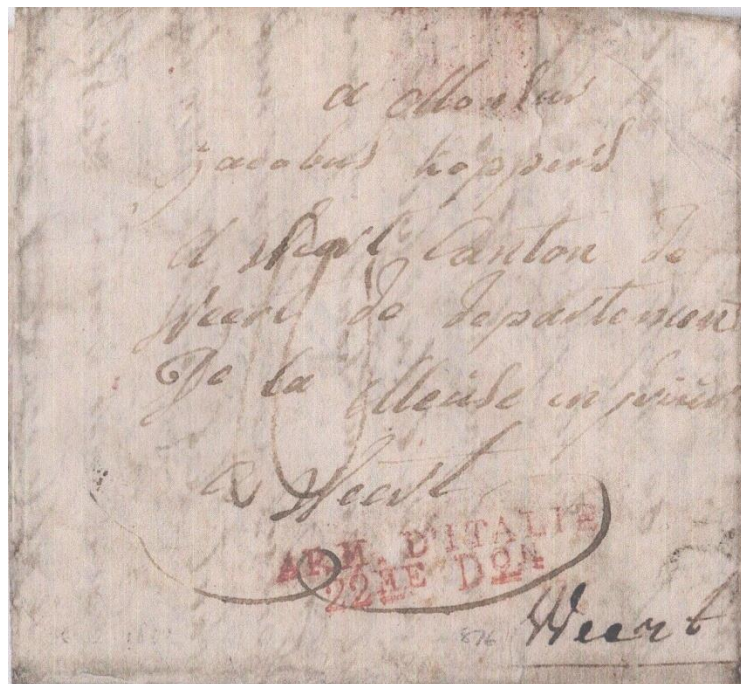 a Monsieur
Jacobus hoppers
a Weert Canton de
Weert de departement
De la Meuse in
a Weert
ARM. D'ITALIE
22ME DON
Weert
876